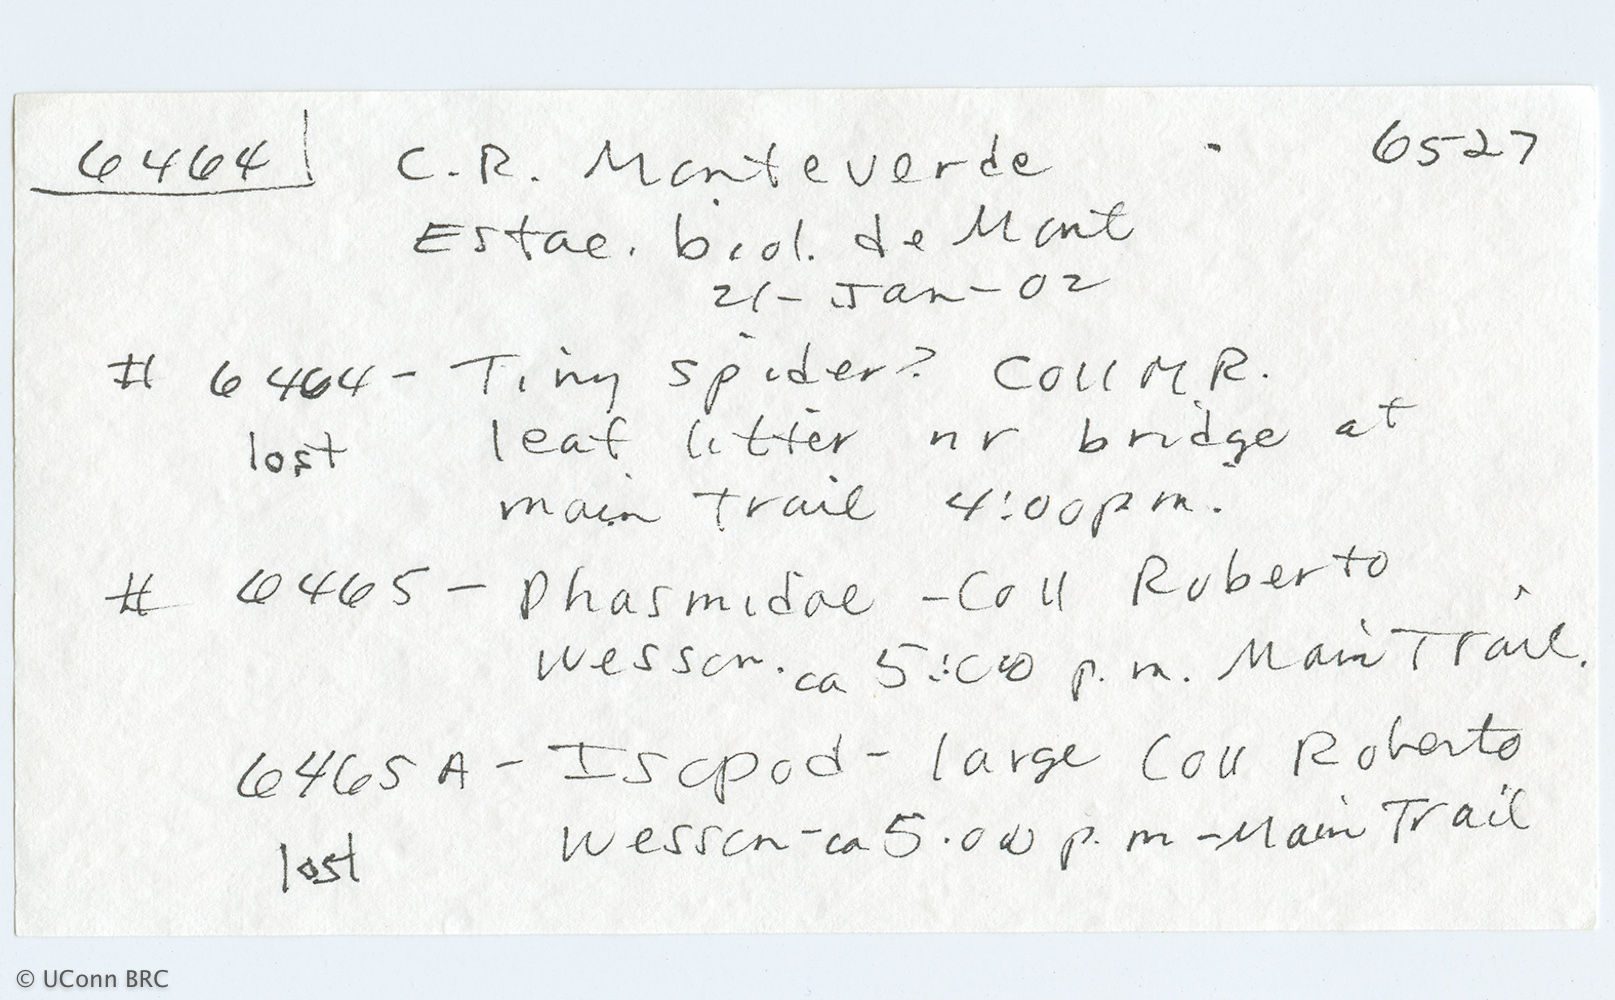 6464 C.R. Monteverde 6527
Estac. biol. de Mont
21-Jan-02
# 6464 - Tiny spider? Coll M R.
lost leaf litter nr bridge at
main trail 4:00 pm.
# 6465 - Phasmidae - Coll Roberto
Wesson. ca 5:00 p.m. Main Trail.
6465 A - Isopod - large Coll Roberto
Wesson - ca 5:00 p.m - Main Trail
lost
© UConn BRC